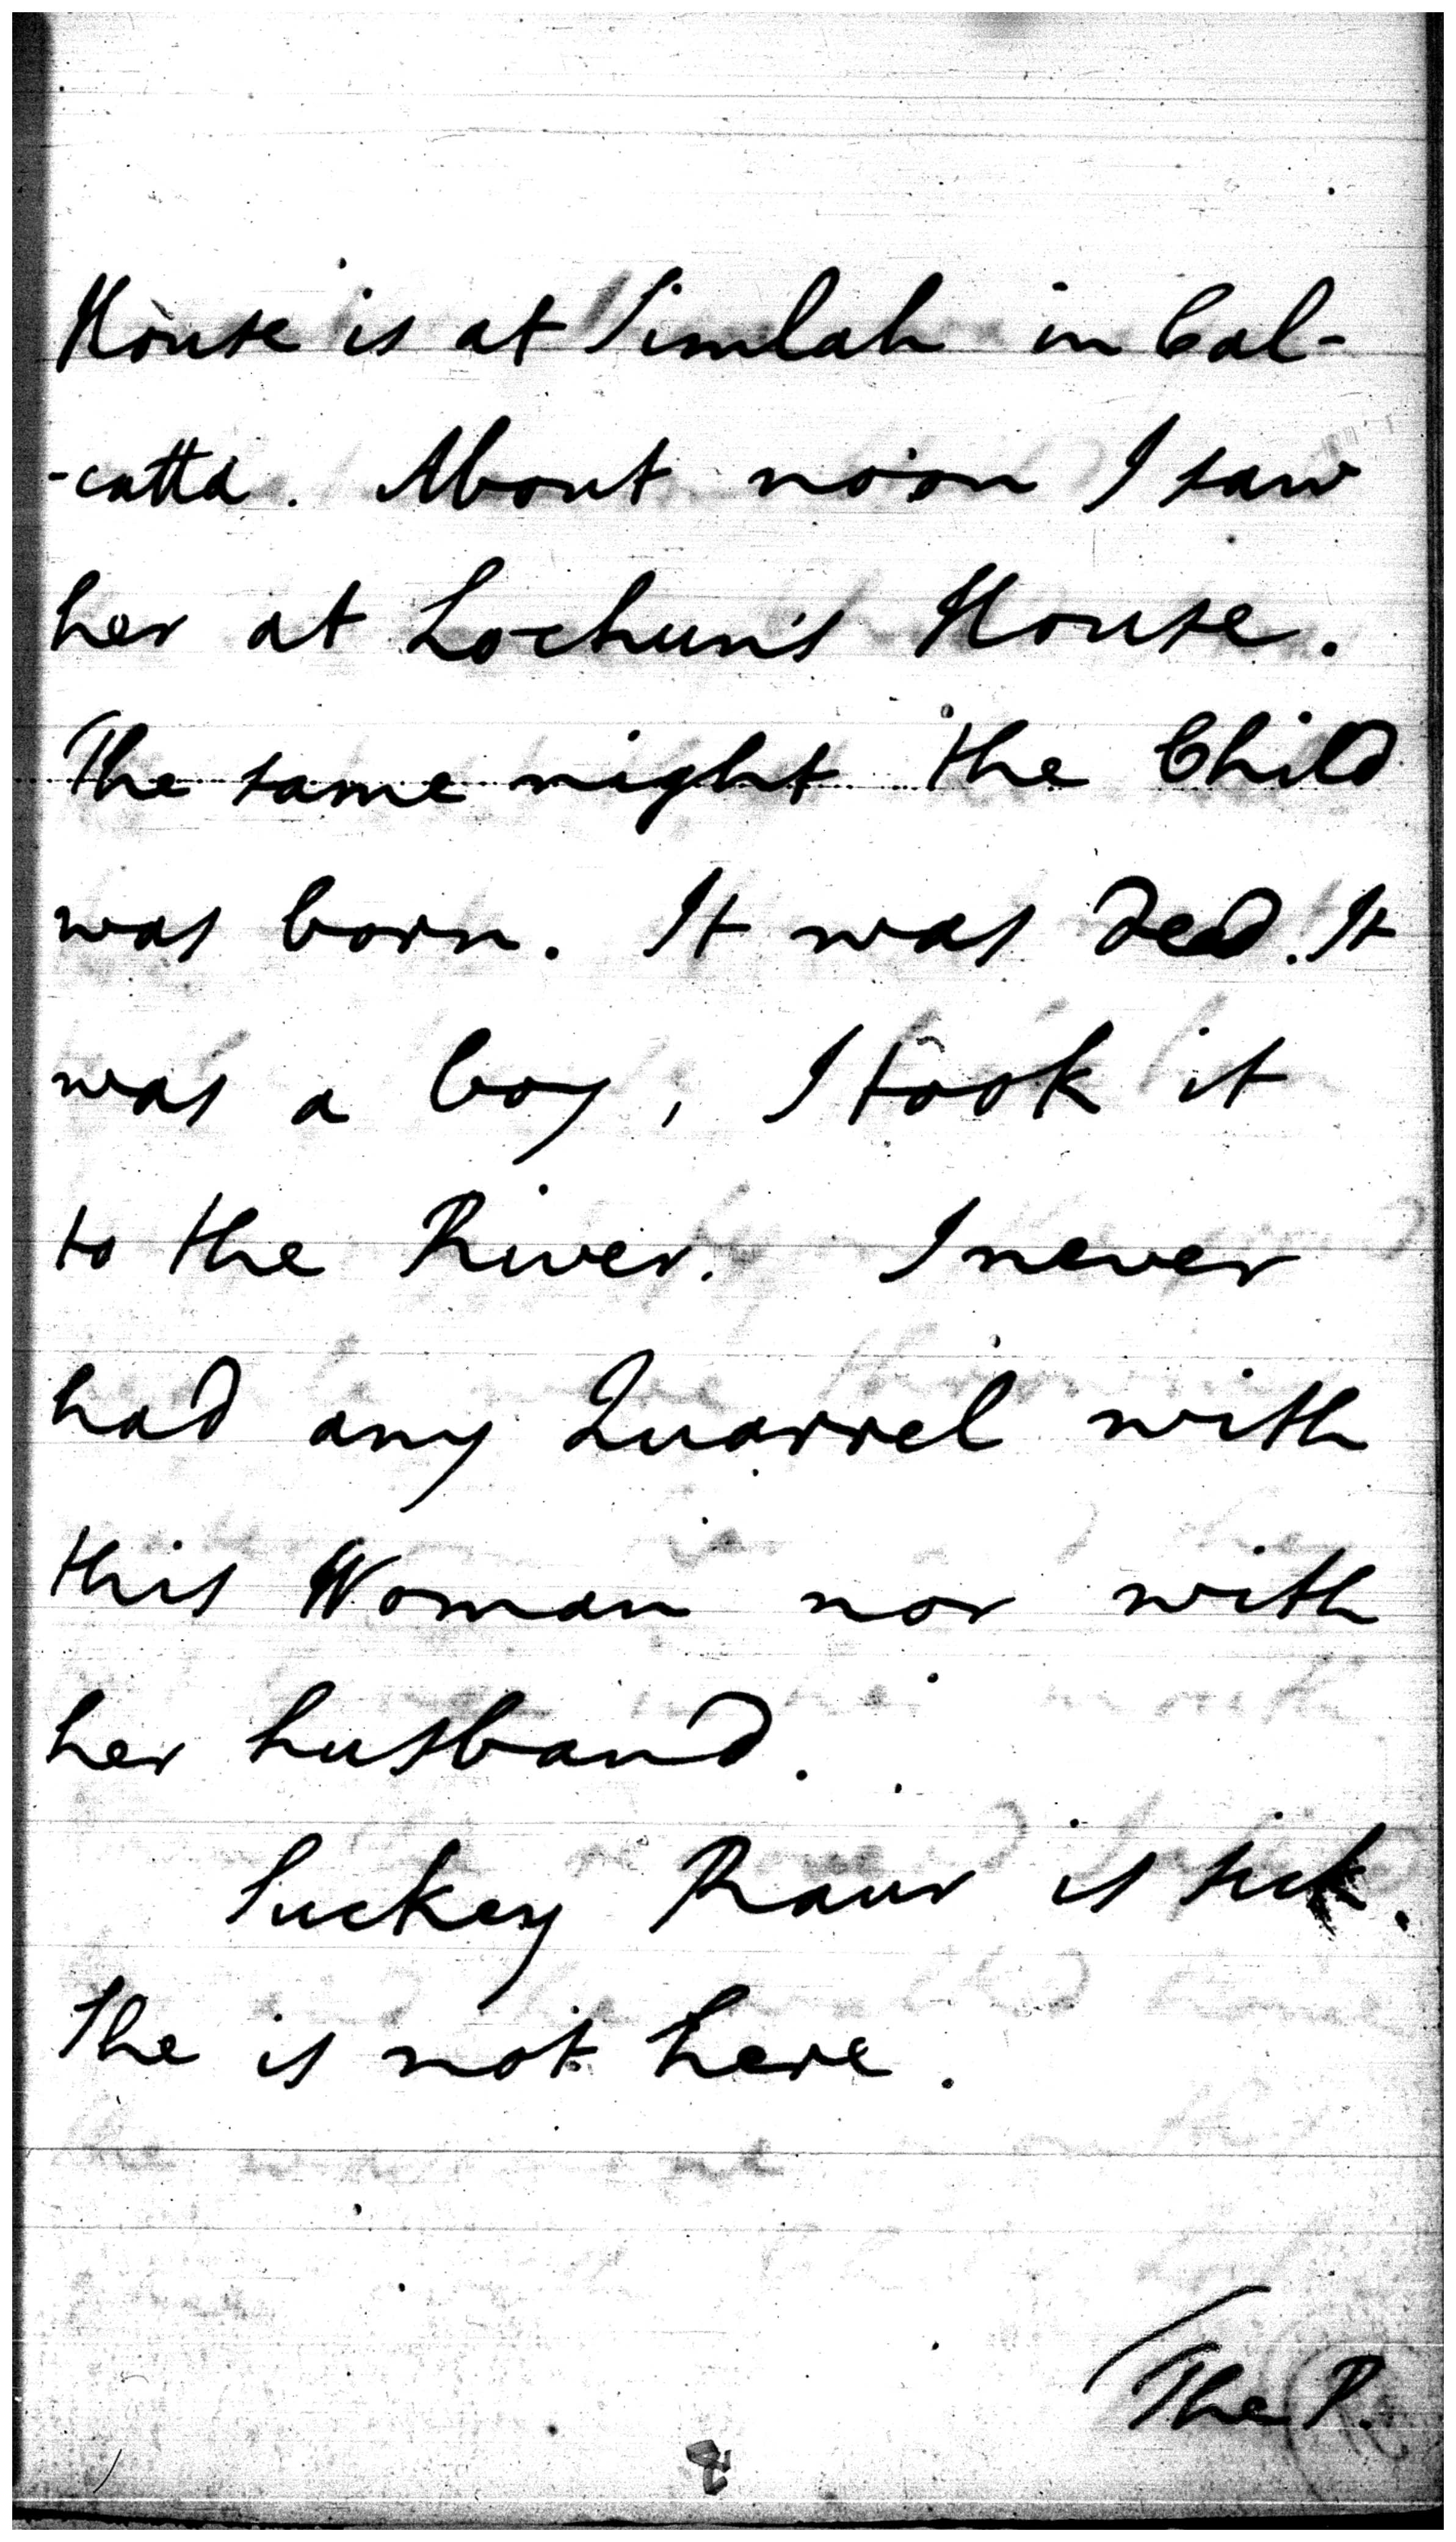 House is at Simlah in Cal-
-catta. About noon I saw
her at Lochun's House.
The same night the Child
was born. It was dead. It
was a boy, I took it
to the River. I never
had any Quarrel with
this Woman nor with
her husband.
Suckey Raur is sick.
She is not here.
The P.